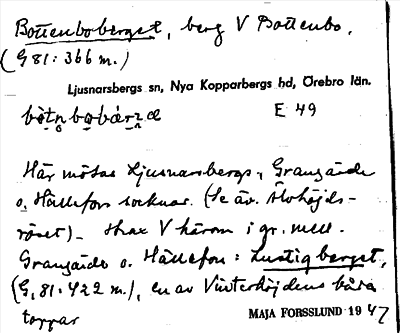 Bottenboberget, berg V Bottenbo.
(G 81: 366 m.)
Ljusnarsbergs sn, Nya Kopparbergs hd, Örebro län.
E 49
Här mötas Ljusnarsbergs, Grangärde
o. Hällefors socknar. (Se äv. Älvhöjds-
röset). Strax V härom i gr. mell.
Grangärde o. Hällefors: Lustigberget,
(G, 81: 422 m.), en av Vinterhöjdens båda
toppar
MAJA FORSSLUND 1947